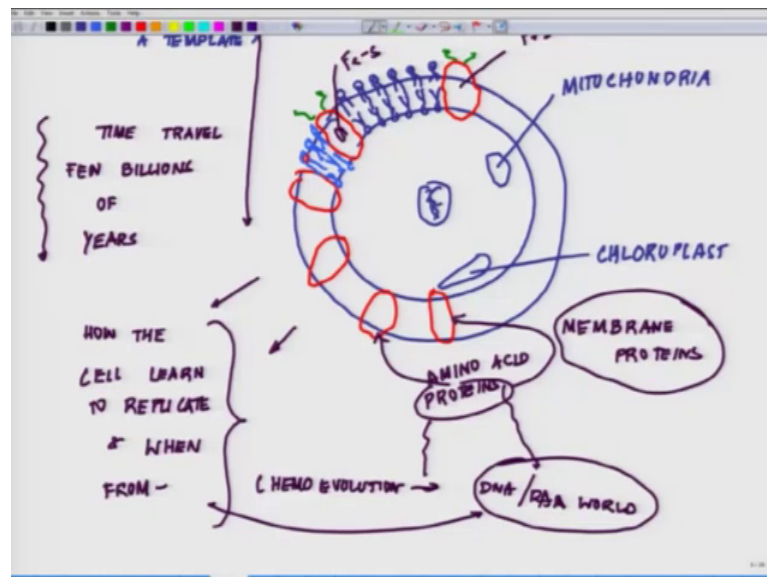 A TEMPLATE
Fe-S
MITOCHONDRIA
TIME TRAVEL
FEW BILLIONS
OF
YEARS
CHLOROPLAST
HOW THE
CELL LEARN
TO REPLICATE
& WHEN
FROM -
MEMBRANE
PROTEINS
AMINO ACID
PROTEINS
CHEMO EVOLUTION →
DNA / RNA WORLD